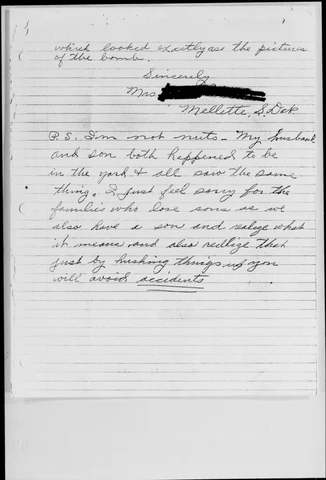 which looked exactly as the picture
of the bomb.
Sincerely
Mrs
Mellette, S. Dak
P.S. I'm not nuts. My husband
and son both happened to be
in the yard & all saw the same
thing. I just feel sorry for the
families who lose sons as we
also have a son and realize what
it means and also realize that
just by hushing things up you
will avoid accidents